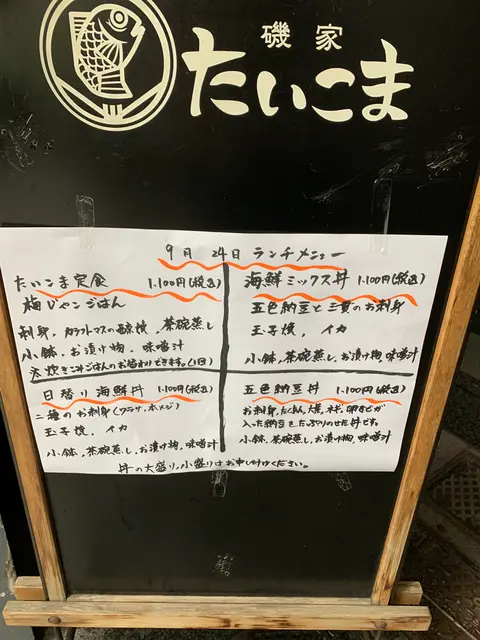 磯家
たいこま
9月 24日 ランチメニュー
たいこま定食 1.100円(税込)
梅じゃこごはん
刺身、カラフトマスの西京焼、茶碗蒸し
小鉢、お漬け物、味噌汁
※炊きこみごはんのお替わりできます。(1回)
海鮮ミックス丼 1.100円(税込)
五色納豆と三貫のお刺身
玉子焼、イカ
小鉢、茶碗蒸し、お漬け物、味噌汁
日替り海鮮丼 1.100円(税込)
二種のお刺身(ワラサ、本メジ)
玉子焼、イカ
小鉢、茶碗蒸し、お漬け物、味噌汁
五色納豆丼 1.100円(税込)
お刺身、たくあん、大葉、ネギ、卵などが
入った納豆をたっぷりのせた丼です。
小鉢、茶碗蒸し、お漬け物、味噌汁
丼の大盛り、小盛りはお申し付けください。